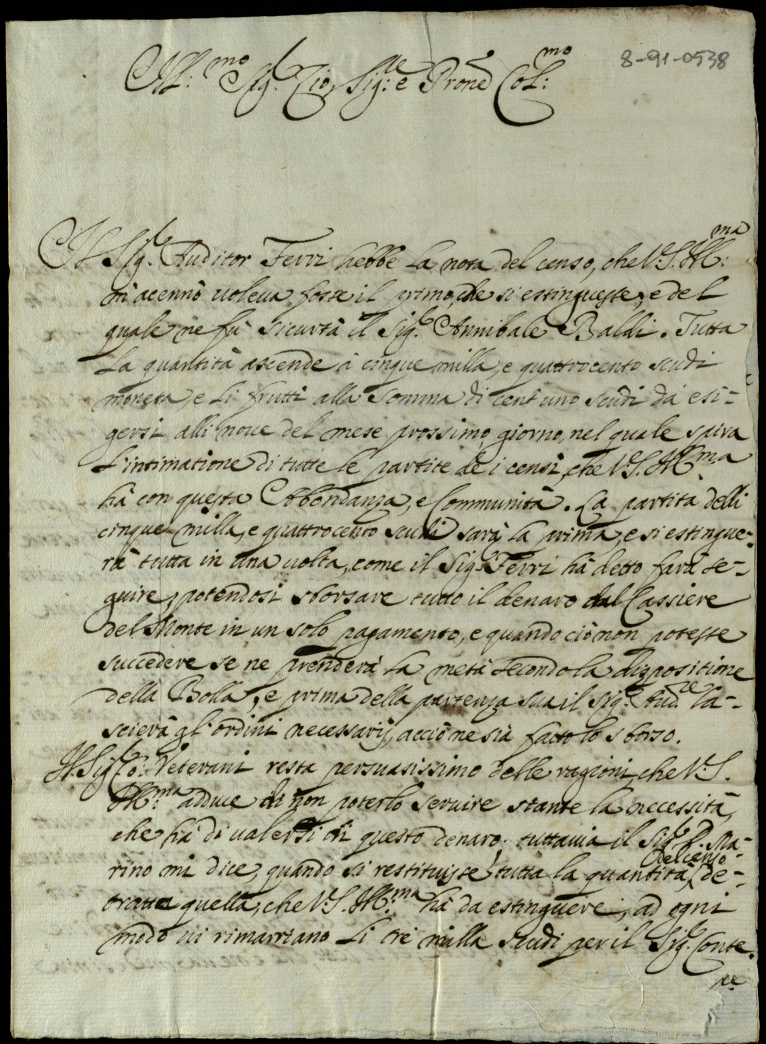 8-91-0538
Ill:mo Sig.r Zio, Sig:re e Prone Col:mo
Il Sig.r Auditor Ferri hebbe la nota del censo, che V.S. Ill:ma
mi acennò voleva fosse il primo, che si estinguesse, e del
quale ne fù sicurtà il Sig.r Annibale Baldi. Tutta
la quantità ascende à cinque milla, e quattrocento scudi
moneta, e li frutti alla somma di cent'uno scudi da esi-
gersi alli nove del mese prossimo, giorno, nel quale spira
l'intimatione di tutte le partite de i censi, che V.S. Ill.ma
hà con questa Abbondanza, e Communità. La partita delli
cinque milla, e quattrocento scudi sarà la prima, e si estingue-
rà tutta in una volta, come il Sig.r Ferri hà detto farà se-
guire, potendosi sborsare tutto il denaro dal Cassiere
del Monte in un solo pagamento, e quando ciò non potesse
succedere se ne prenderà la metà secondo la dispositione
della Bolla, e prima della partenza sua il Sig.r Aud.re la-
scierà gl'ordini necessarij, acciò ne sia fatto lo sborso.
Il Sig.r Co: Veterani resta persuasissimo delle ragioni, che V.S.
Ill.ma adduce di non poterlo servire stante la necessità,
che hà di valersi di questo denaro: tuttavia il Sig.r D. Ma-
rino mi dice, quando si restituisse tutta la quantità, de-
del censo
tratta quella, che V.S. Ill.ma hà da estinguere, ad ogni
modo vi rimarriano li tre milla scudi per il Sig.r Conte.